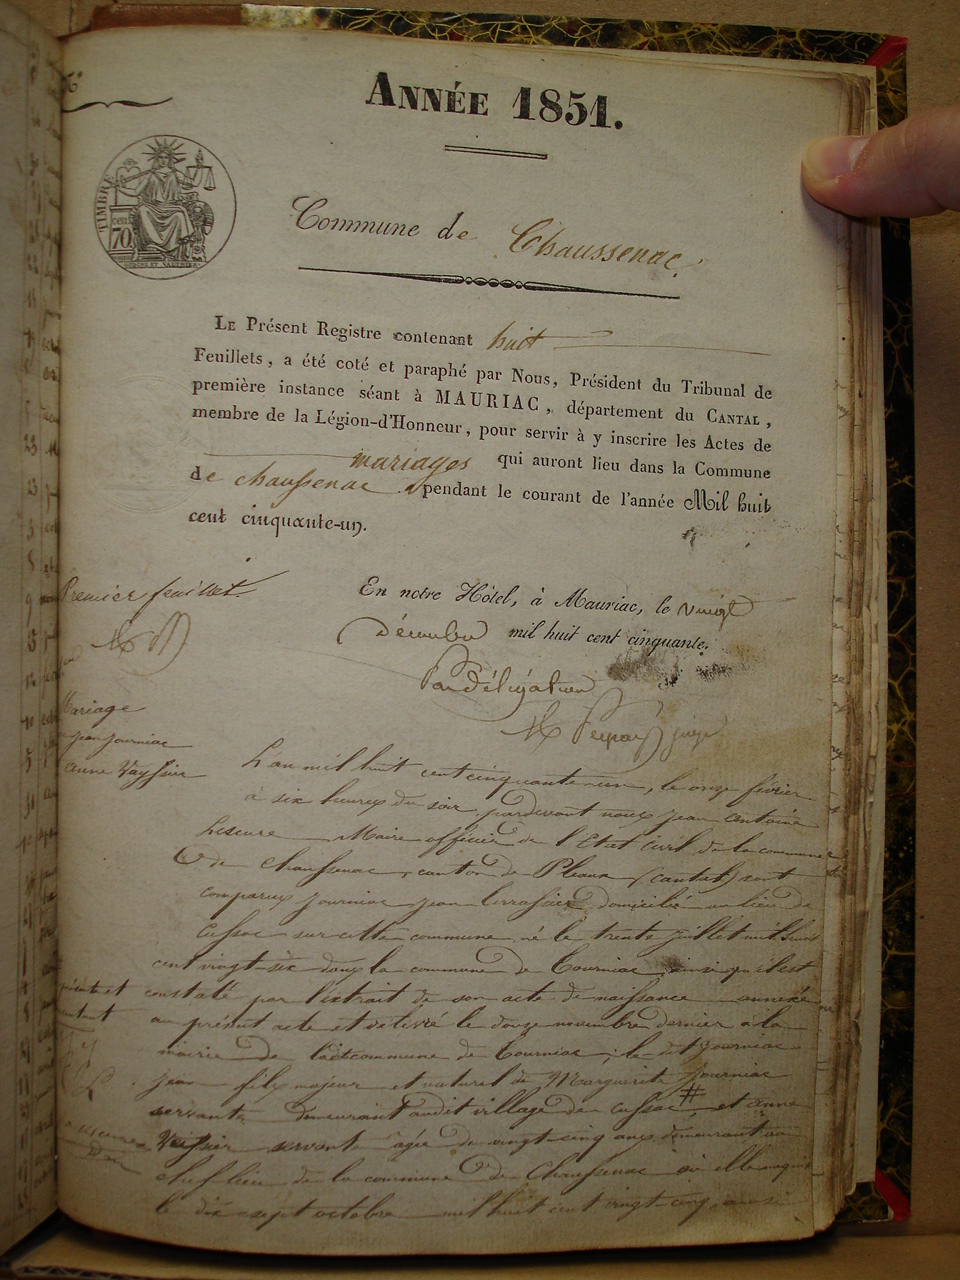 ANNÉE 1851.
TIMBRE
70
Commune de Chaussenac.
LE Présent Registre contenant huit
Feuillets, a été coté et paraphé par Nous, Président du Tribunal de
première instance séant à MAURIAC, département du CANTAL,
membre de la Légion-d'Honneur, pour servir à y inscrire les Actes de
mariages qui auront lieu dans la Commune
de chaussenac pendant le courant de l'année Mil huit
cent cinquante-un.
En notre Hôtel, à Mauriac, le vingt
Décembre mil huit cent cinquante.
Par délégation
juge
Premier feuillet
Mariage
jean journiac
anne Vayssier
L'an mil huit cent cinquante un, le onze février
à six heures du soir, pardevant nous jean antoine
Lescure Maire officier de l'Etat civil de la commune
de chaussenac, canton de Pleaux (cantal) sont
comparus journiac jean terrassier domicilié au lieu de
Cussac sur cette commune né le trente juillet mil huit
cent vingt-six dans la commune de Tourniac, ainsi qu'il est
constaté par l'extrait de son acte de naissance annexé
au présent acte et délivré le douze novembre dernier à la
mairie de la dt commune de Tourniac; le dt journiac
jean fils majeur et naturel de Marguerite journiac
servante demeurant audit village de cussac # et anne
Veissier servante âgée de vingt-cinq ans demeurant au
chef lieu de la commune de Chaussenac où elle naquit
le dix sept octobre mil huit cent vingt-cinq, ainsi
présente et